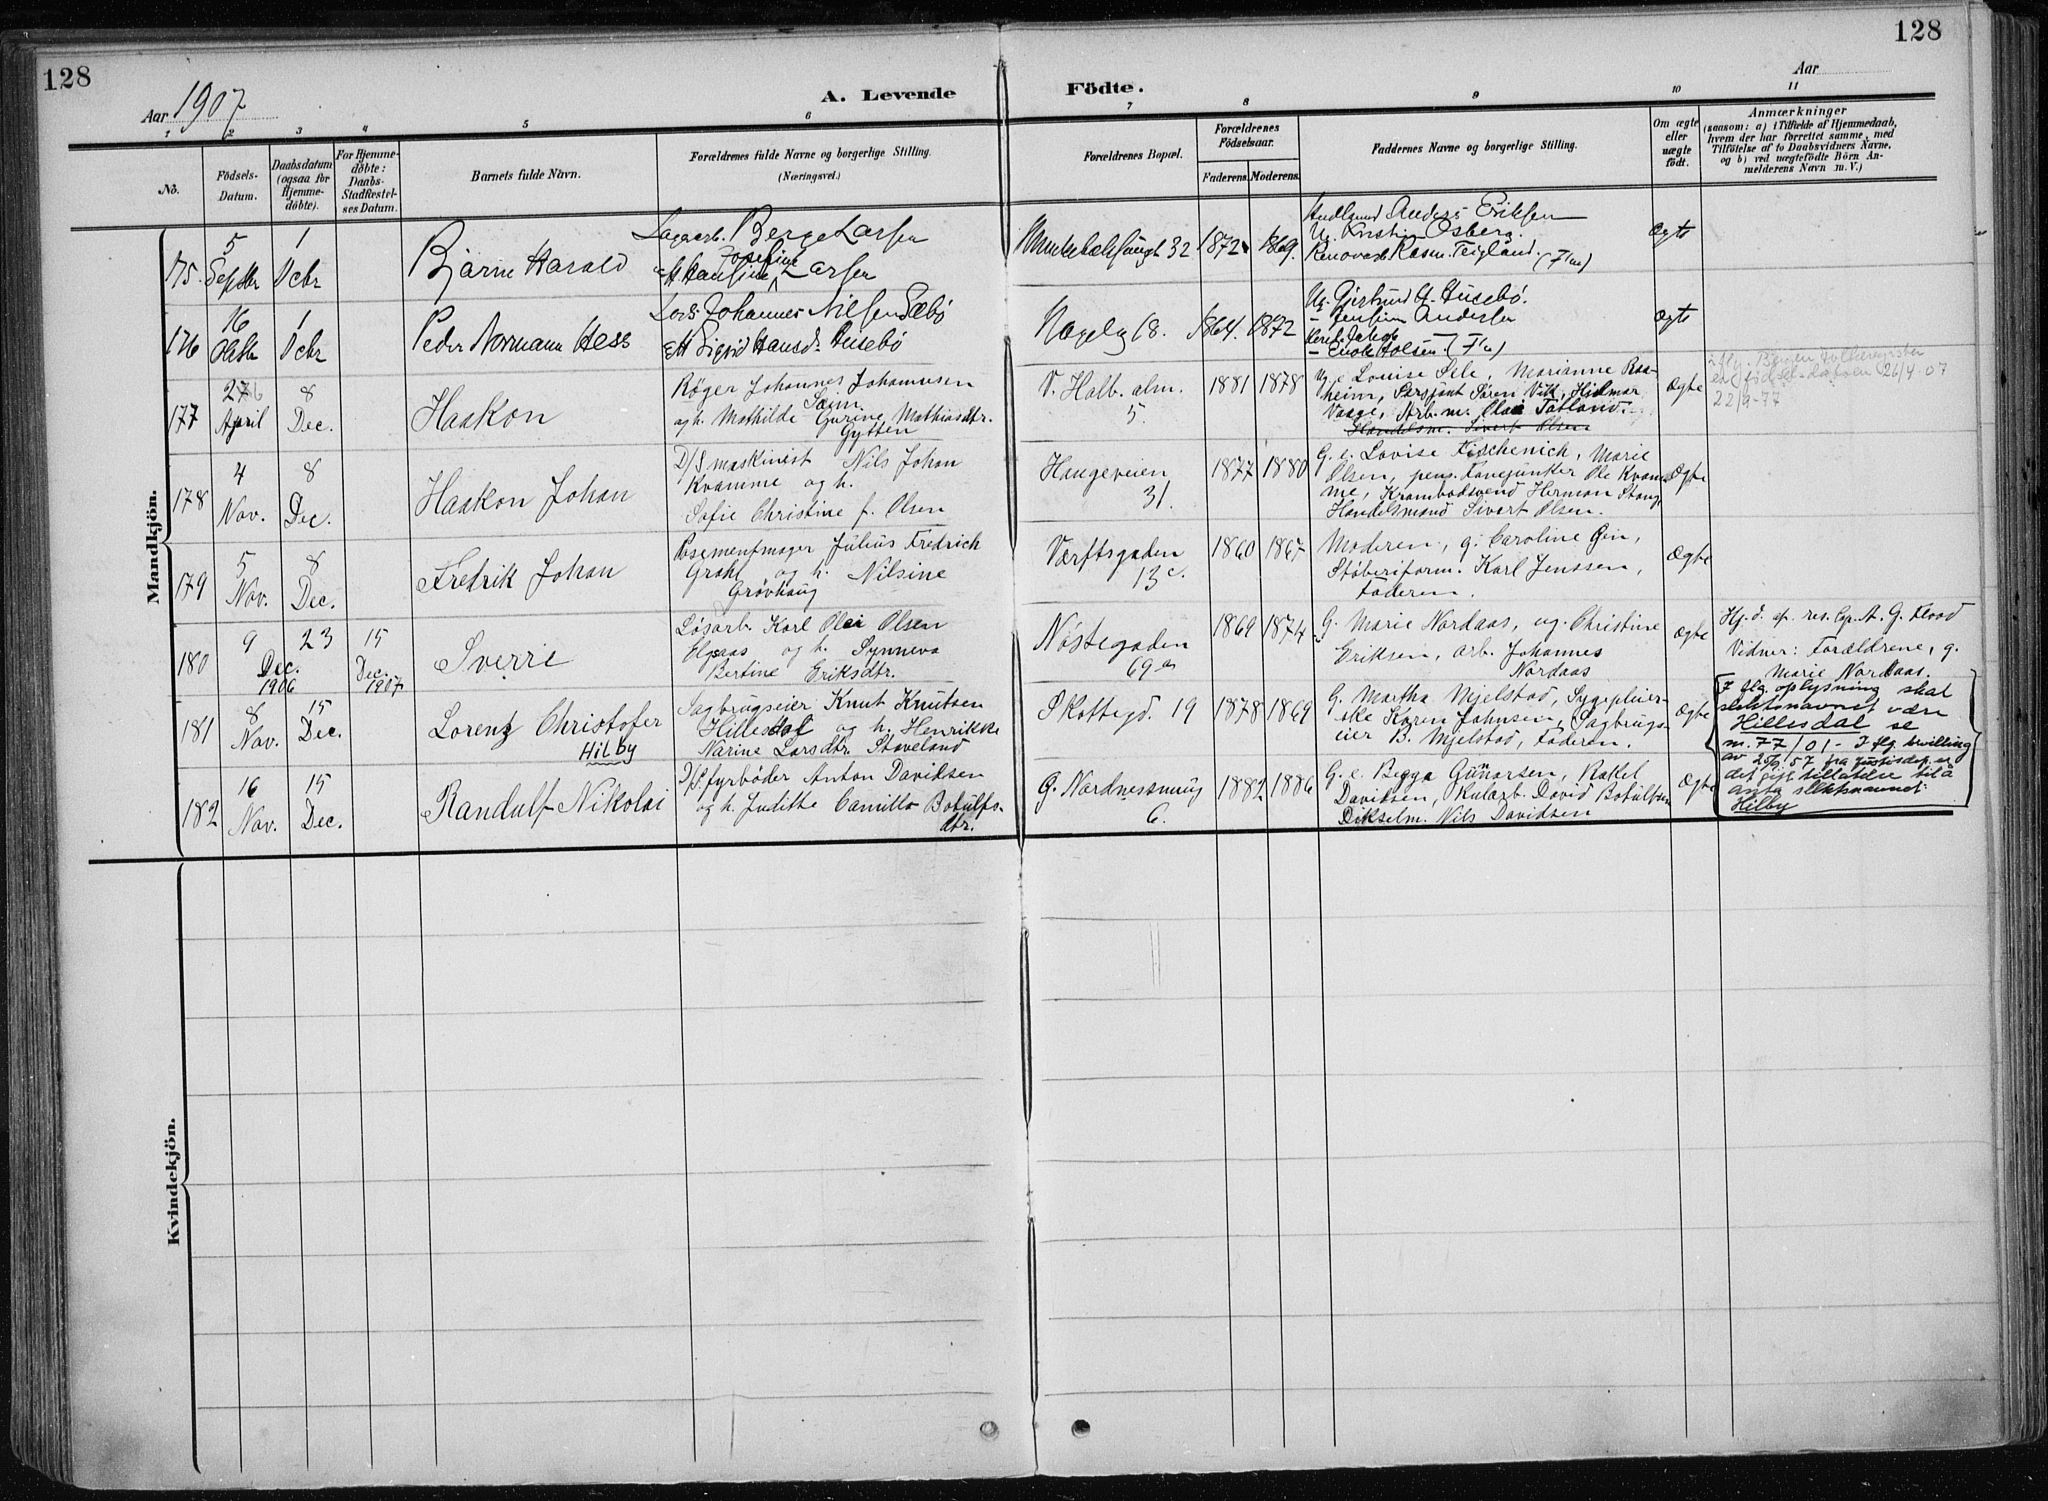 128
128
Aar 1907
A. Levende Födte.
Aar
1 2 3 4 5 6 7 8 9 10 11
No.
Födsels-Datum.
Daabsdatum (ogsaa for Hjemme-döbte).
For Hjemme-döbte: Daabs-Stadfæstel-ses Datum.
Barnets fulde Navn.
Forældrenes fulde Navne og borgerlige Stilling.
(Næringsvei.)
Forældrenes Bopæl.
Forældrenes Födselsaar.
Faderens. Moderens.
Faddernes Navne og borgerlige Stilling.
Om ægte eller uægte født.
Anmærkninger
(saasom: a) i Tilfælde af Hjemmedaab,
hvem der har forrettet samme, med
Tilföielse af to Daabsvidners Navne,
og b) ved uægtefödte Börn An-
melderens Navn m. V.)
Mandkjön.
175. 5 Septbr 1 Dcbr
Bjarne Harald
Berge Larsen
Josefine
Larsen
32 1872 1869.
Anders Eriksen
Ug. Kristin Osberg.
Renovasb Rasm. Teigland. (F m)
Ægte
176 16 Oktbr 1 Dcbr
Peder Normann Hess
Lods Johannes Nilsen Sæbö
og H Sigrid Hansd. Husebö
Nagelg 68. 1864. 1872
Ug. Gjertrud H. Husebö.
Andersen
Jakob
– Enok Holsen. (F m)
Ægte
177 27 April 8 Dec.
Haakon
Røger Johannes Johannesen
Saim
og h. Mathilde Gurine Mathiasdtr.
Gytten
V. Halb. alm. 5. 1881 1878
Ug. e Louise Sele, Marianne Raa-
heim, Sersjant Søren Vik, Hidmar
Vaage, Arb. m. Olai Tatland
Handelsm. Sivert Olsen
Ægte
iflg. Bergen folkeregister
er fødsel-datoen 26/4 07
22/9-77
178 4 Nov. 8 Dec.
Haakon Johan
D/S maskinist Nils Johan
Kvamme og h.
Sofie Christine f. Olsen
Haugeveien 31. 1877 1880
G. e. Lovise Fischenich, Marie
Olsen, pens. Fanejunker Ole Kvam-
me, Krambodsvend Herman Stang,
Handelsmand Sivert Olsen.
Ægte
179 5 Nov. 8 Dec.
Fredrik Johan
Posementmager Julius Fredrich
Grahl og h. Nilsine
Grøvhaug
Værftsgaden 13 c. 1860 1867
Moderen, g. Caroline Gin,
Støberiform. Karl Jenssen,
Faderen.
Ægte
180 9 Dec. 1906 23 15 Dec. 1907
Sverre
Løsarb. Karl Olai Olsen
Elsaas og h. Synneva
Bertine Eriksdtr.
Nøstegaden 69 a 1869 1874
G. Marie Nordaas, ug. Christine
Eriksen, arb. Johannes
Nordaas
Ægte
Hj. d. af res. Cp. A. G. Flood
Vidner: Forældrene, g.
Marie Nordaas.
181 8 Nov. 15 Dec.
Lorenz Christofer
Hilby
Sagbrugseier Knut Knutsen
Hillesdal og h. Henrikke
Narine Larsdtr. Staveland
Skottegd. 19 1878 1869
G. Martha Mjelstad, Sygepleier-
ske Karen Johnsen, Sagbrugs-
eier B. Mjelstad, Faderen.
Ægte
I flg. oplysning skal
slektsnavnet være
Hillesdal se
m. 77/01 – I flg. bevilling
av 25/6 57 fra justisdep. er
det gitt tillatelse til å
anta slektsnavnet:
Hilby
182 16 Nov. 15 Dec.
Randulf Nikolai
D/S fyrbøder Anton Davidsen
og h. Judithe Camilla Botulfs-
dtr.
G. Nordnessmug 6. 1882 1886
G. e. Begga Gunarsen, Rakel
Davidsen, Skularb. David Botulfsen
Dikselm. Nils Davidsen
Ægte
Kvindekjön.